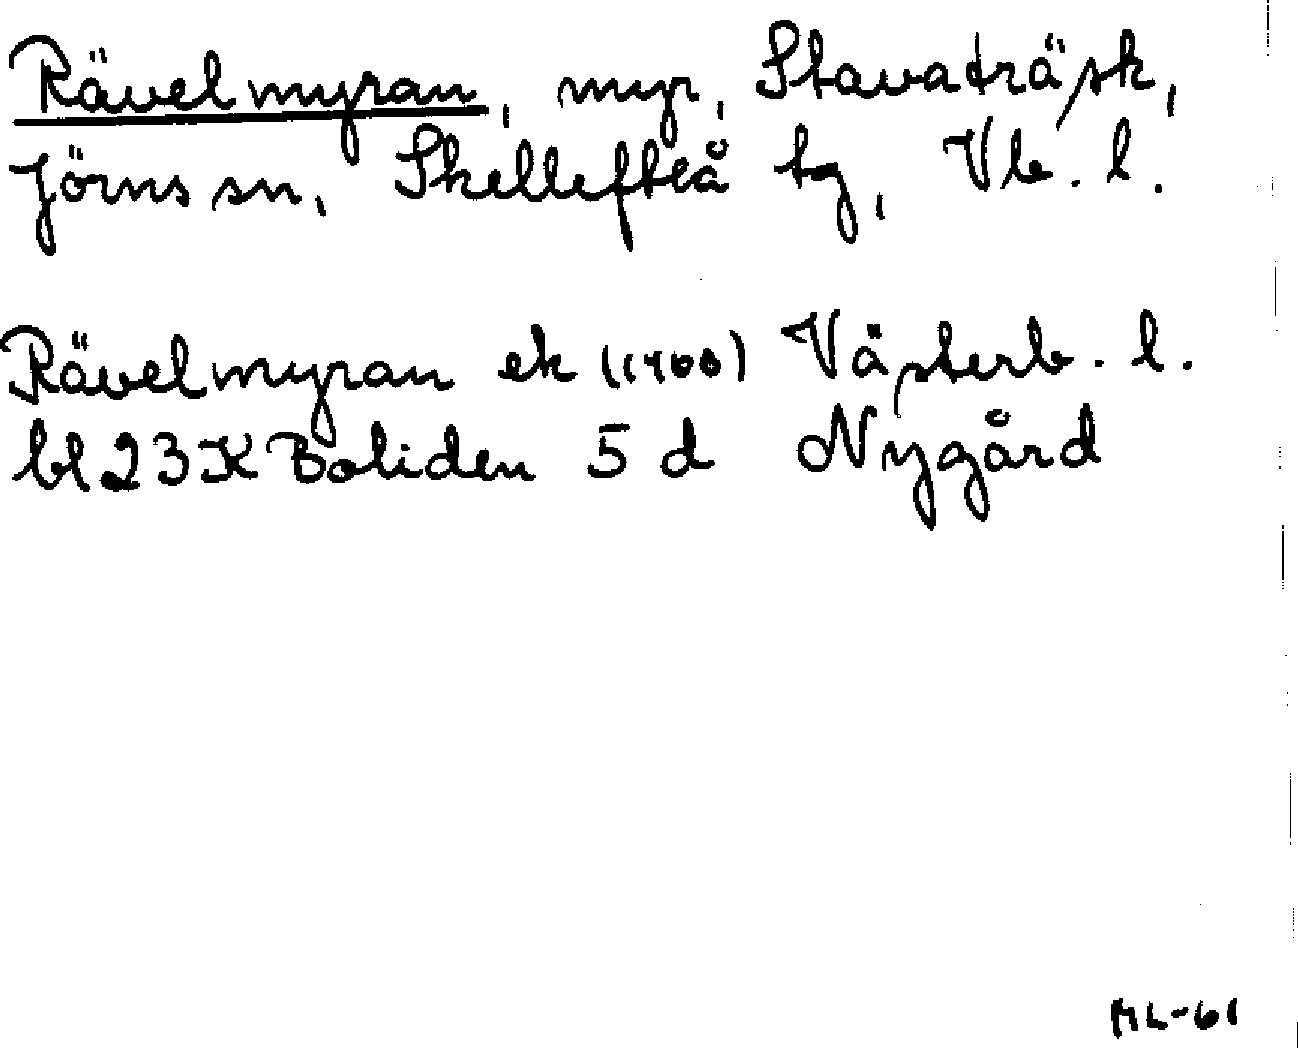 Rävelmyran, myr, Stavaträsk,
Jörns sn, Skellefteå tg, Vb. l.
Rävelmyran ek (1960) Västerb. l.
bl 23 K Boliden 5 d Nygård
ML-61